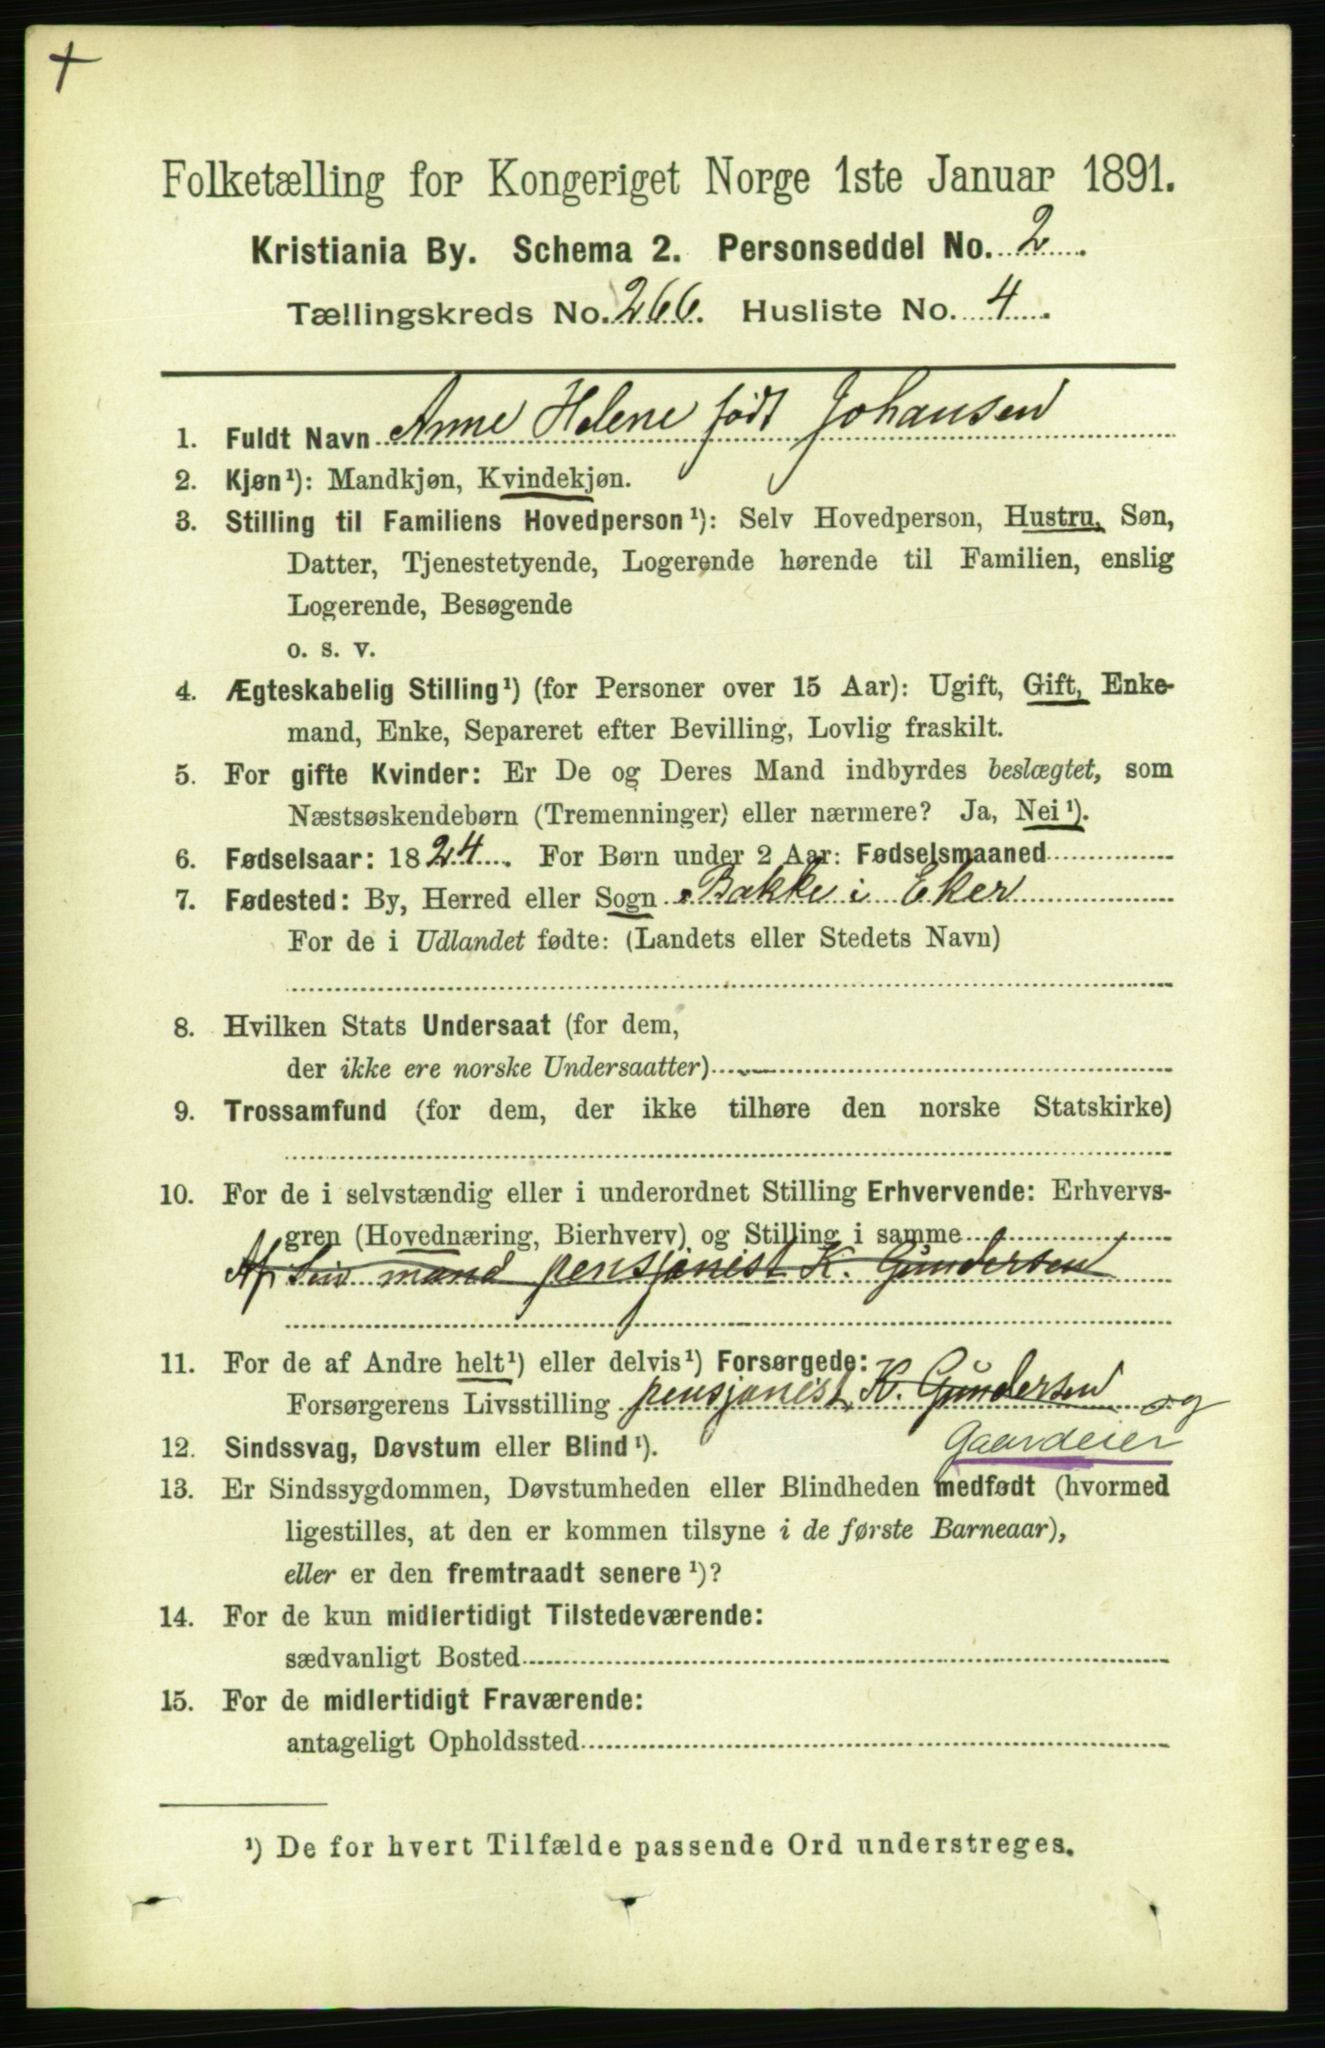 Folketælling for Kongeriget Norge 1ste Januar 1891.
Kristiania By. Schema 2. Personseddel No. 2
Tællingskreds No. 266. Husliste No. 4
1. Fuldt Navn Anne Helene født Johansen
2. Kjøn¹): Mandkjøn, Kvindekjøn.
3. Stilling til Familiens Hovedperson¹): Selv Hovedperson, Hustru, Søn,
Datter, Tjenestetyende, Logerende hørende til Familien, enslig
Logerende, Besøgende
o. s. v.
4. Ægteskabelig Stilling¹) (for Personer over 15 Aar): Ugift, Gift, Enke-
mand, Enke, Separeret efter Bevilling, Lovlig fraskilt.
5. For gifte Kvinder: Er De og Deres Mand indbyrdes beslægtet, som
Næstsøskendebørn (Tremenninger) eller nærmere? Ja, Nei¹).
6. Fødselsaar: 1824. For Børn under 2 Aar: Fødselsmaaned
7. Fødested: By, Herred eller Sogn Bakke i Eker
For de i Udlandet fødte: (Landets eller Stedets Navn)
8. Hvilken Stats Undersaat (for dem,
der ikke ere norske Undersaatter)
9. Trossamfund (for dem, der ikke tilhøre den norske Statskirke)
10. For de i selvstændig eller i underordnet Stilling Erhvervende: Erhvervs-
gren (Hovednæring, Bierhverv) og Stilling i samme
Af Sin mand pensjonist K. Gundersen
11. For de af Andre helt¹) eller delvis¹) Forsørgede:
Forsørgerens Livsstilling pensjonist K. Gundersen og
12. Sindssvag, Døvstum eller Blind¹). Gaardeier
13. Er Sindssygdommen, Døvstumheden eller Blindheden medfødt (hvormed
ligestilles, at den er kommen tilsyne i de første Barneaar),
eller er den fremtraadt senere¹)?
14. For de kun midlertidigt Tilstedeværende:
sædvanligt Bosted
15. For de midlertidigt Fraværende:
antageligt Opholdssted
¹) De for hvert Tilfælde passende Ord understreges.